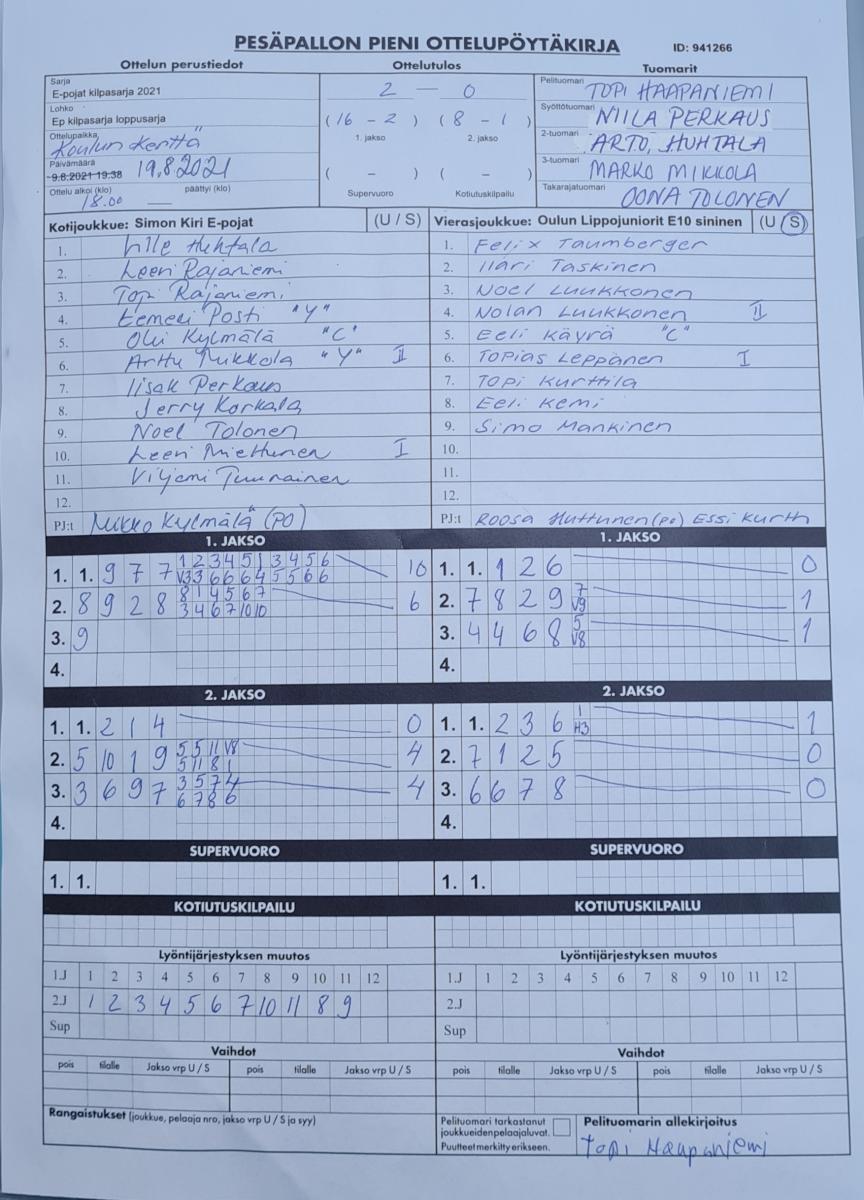 PESÄPALLON PIENI OTTELUPÖYTÄKIRJA ID: 941266
Ottelun perustiedot Ottelutulos Tuomarit
Sarja
E-pojat kilpasarja 2021
Lohko
Ep kilpasarja loppusarja
Ottelupaikka
Koulun kenttä
Päivämäärä
9.8.2021 19:38 19.8.2021
Ottelu alkoi (klo) päättyi (klo)
18.00
2 – 0
(16 – 2) (8 – 1)
1. jakso 2. jakso
( – ) ( – )
Supervuoro Kotiutuskilpailu
Pelituomari TOPI HAAPANIEMI
Syöttötuomari NIILA PERKAUS
2-tuomari ARTO HUHTALA
3-tuomari MARKO MIKKOLA
Takarajatuomari OONA TOLONEN
Kotijoukkue: Simon Kiri E-pojat (U / S)
1. Huhtala
2. Leevi Rajaniemi
3. Topi Rajaniemi
4. Eemeli Posti "Y"
5. Olli Kylmälä "C"
6. Arttu Mikkola "Y" II
7. Iisak Perkaus
8. Jerry Korkala
9. Noel Tolonen
10. Leevi Miettunen I
11. Viljami Tuunainen
12.
PJ:t Mikko Kylmälä (PO)
Vierasjoukkue: Oulun Lippojuniorit E10 sininen (U / S)
1. Felix Taumberger
2. Ilari Taskinen
3. Noel Luukkonen
4. Nolan Luukkonen II
5. Eeli Käyrä "C"
6. Topias Leppänen I
7. Topi Kurttila
8. Eeli Kemi
9. Simo Mankinen
10.
11.
12.
PJ:t Roosa Huttunen (po) Essi Kurth
1. JAKSO
1. 1. 9 7 7 1 2 3 4 5 1 3 4 5 6 10
V3 3 6 6 6 4 5 5 6 6
2. 8 9 2 8 8 1 4 5 6 7 6
3 4 6 7 10 10
3. 9
4.
1. JAKSO
1. 1. 1 2 6 0
2. 7 8 2 9 7 1
V9
3. 4 4 6 8 5 1
V8
4.
2. JAKSO
1. 1. 2 1 4 0
2. 5 10 1 9 5 5 11 V8 4
5 11 8 1
3. 3 6 9 7 3 5 7 4 4
6 7 8 6
4.
2. JAKSO
1. 1. 2 3 6 1 1
H3
2. 7 1 2 5 0
3. 6 6 7 8 0
4.
SUPERVUORO SUPERVUORO
1. 1. 1. 1.
KOTIUTUSKILPAILU KOTIUTUSKILPAILU
Lyöntijärjestyksen muutos
1.J 1 2 3 4 5 6 7 8 9 10 11 12
2.J 1 2 3 4 5 6 7 10 11 8 9
Sup
Lyöntijärjestyksen muutos
1.J 1 2 3 4 5 6 7 8 9 10 11 12
2.J
Sup
Vaihdot Vaihdot
pois tilalle Jakso vrp U / S pois tilalle Jakso vrp U / S pois tilalle Jakso vrp U / S pois tilalle Jakso vrp U / S
Rangaistukset (joukkue, pelaaja nro, jakso vrp U / S ja syy)
Pelituomari tarkastanut
joukkueiden pelaajaluvat.
Puutteet merkitty erikseen.
Pelituomarin allekirjoitus
Topi Haapaniemi